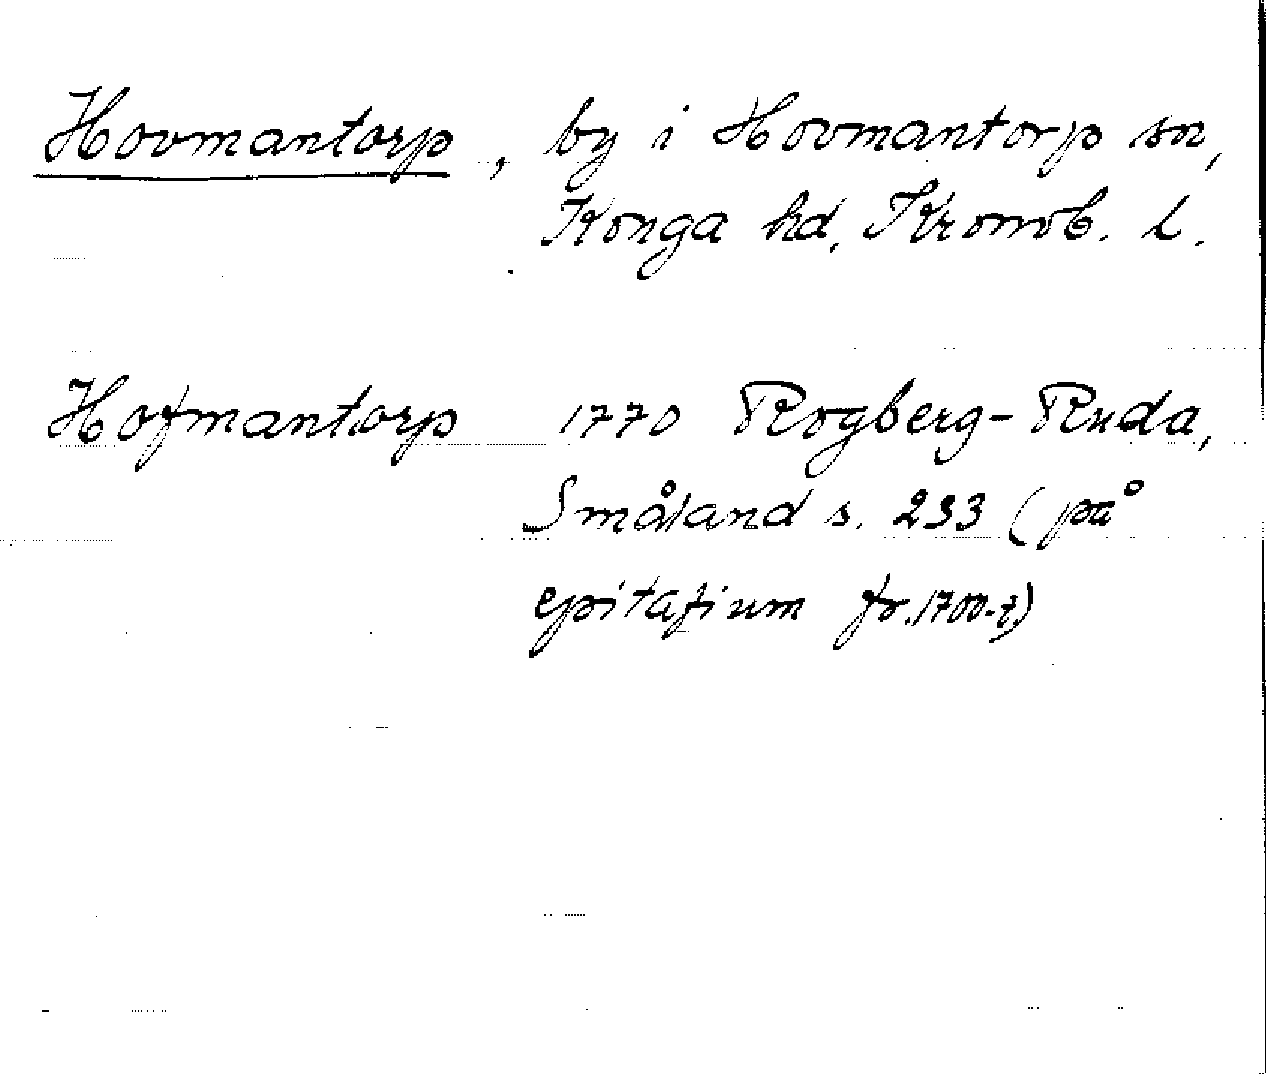 Hovmantorp, by i Hovmantorp sn,
Konga hd, Kronob. l.
Hofmantorp 1770 Rogberg-Ruda,
Småland s. 233 (på
epitafium fr. 1700-t)